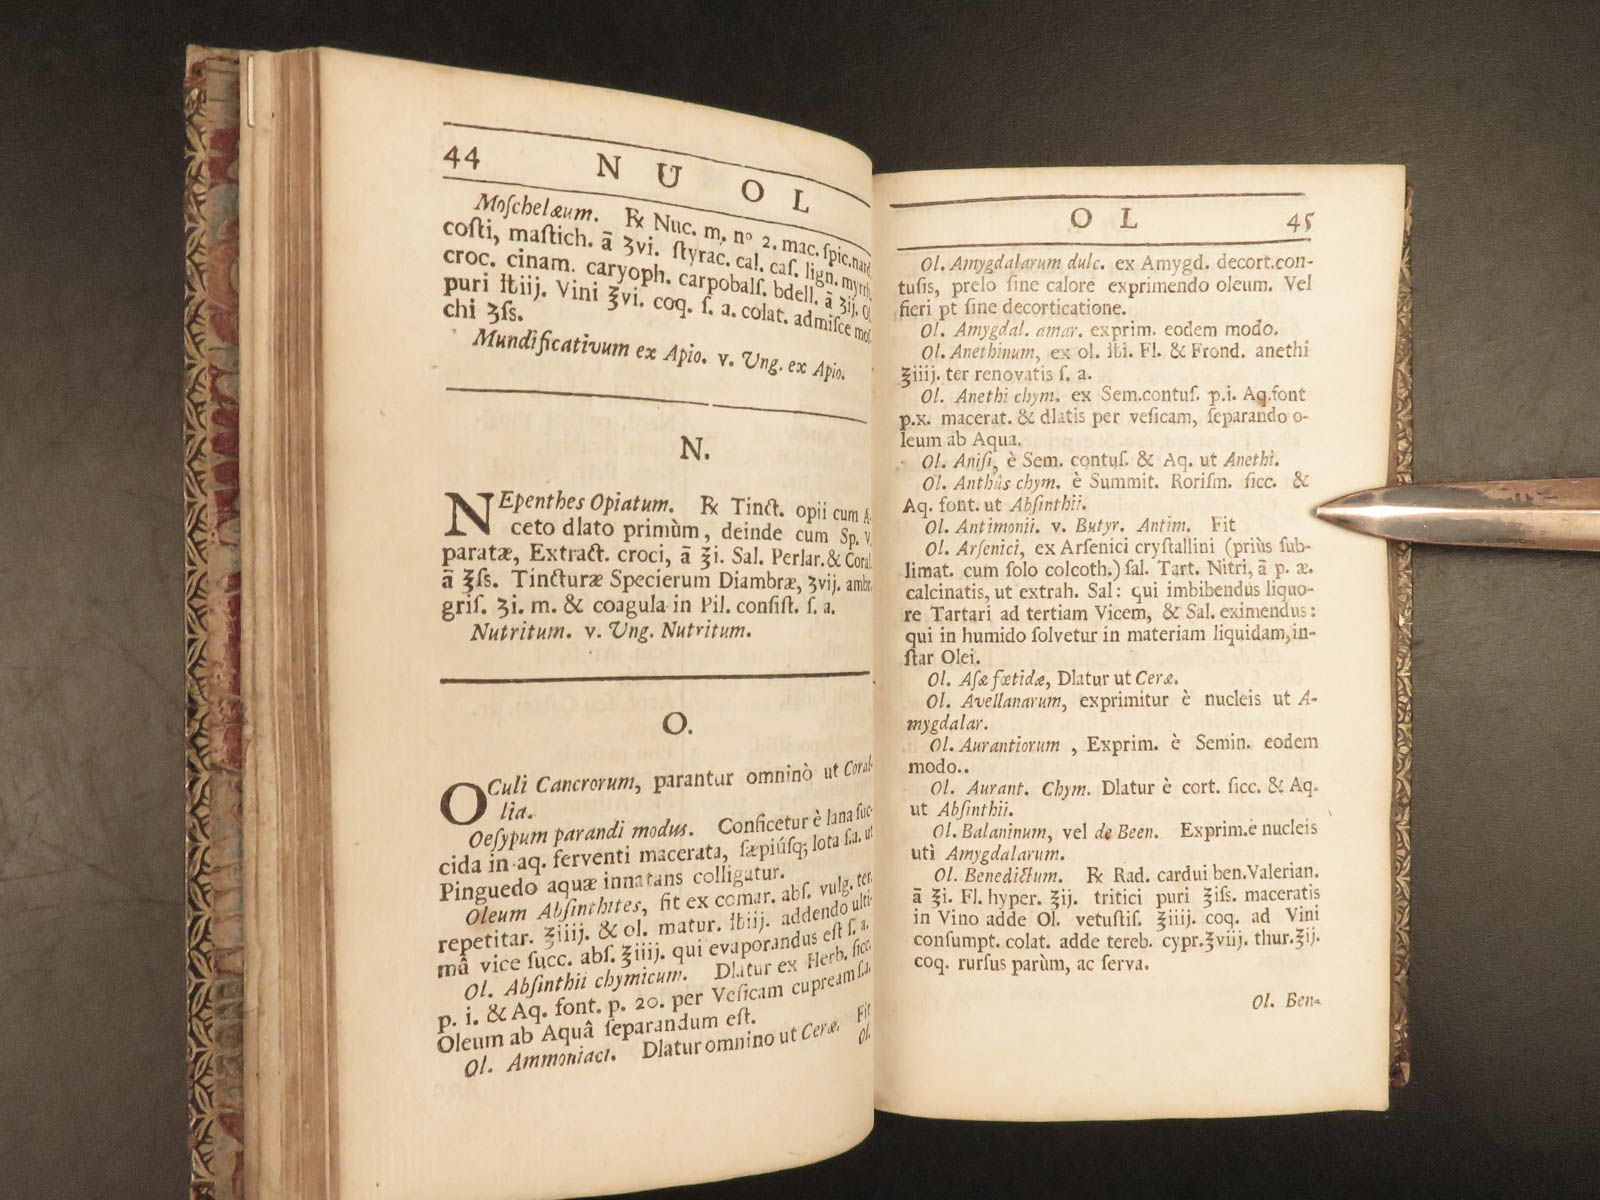 44 NU OL
Moſchelæum. ℞ Nuc. m. nº 2. mac. ſpic. nard.
coſti, maſtich. ā ʒvi. ſtyrac. cal. caſ. lign. myrrh.
croc. cinam. caryoph. carpobalſ. bdell. ā ʒij. Ol.
puri ℔iij. Vini ℥vi. coq. ſ. a. colat. admiſce moſ-
chi ʒſs.
Mundificativum ex Apio. v. Ung. ex Apio.
N.
NEpenthes Opiatum. ℞ Tinct. opii cum A-
ceto dlato primùm, deinde cum Sp. v.
paratæ, Extract. croci, ā ℥i. Sal. Perlar. & Coral.
ā ℥ſs. Tincturæ Specierum Diambræ, ʒvij. ambr.
griſ. ʒi. m. & coagula in Pil. conſiſt. ſ. a.
Nutritum. v. Ung. Nutritum.
O.
OCuli Cancrorum, parantur omninò ut Coral-
lia.
Oeſypum parandi modus. Conficetur è lana ſuc-
cida in aq. ferventi macerata, ſæpiúſq; lota ſ.a. ut
Pinguedo aquæ innatans colligatur.
Oleum Abſinthites, fit ex comar. abſ. vulg. ter.
repetitar. ℥iiij. & ol. matur. ℔iij. addendo ulti-
mâ vice ſucc. abſ. ℥iiij. qui evaporandus eſt ſ. a.
Ol. Abſinthii chymicum. Dlatur ex Herb. ſicc.
p. i. & Aq. font. p. 20. per Veſicam cupream ſ.a.
Oleum ab Aquâ ſeparandum eſt.
Ol. Ammoniaci. Dlatur omnino ut Ceræ. Fit
Ol.
OL 45
Ol. Amygdalarum dulc. ex Amygd. decort. con-
tuſis, prelo ſine calore exprimendo oleum. Vel
fieri pt ſine decorticatione.
Ol. Amygdal. amar. exprim. eodem modo.
Ol. Anethinum, ex ol. ℔i. Fl. & Frond. anethi
℥iiij. ter renovatis ſ. a.
Ol. Anethi chym. ex Sem. contuſ. p.i. Aq. font
p.x. macerat. & dlatis per veſicam, ſeparando o-
leum ab Aqua.
Ol. Aniſi, è Sem. contuſ. & Aq. ut Anethi.
Ol. Anthûs chym. è Summit. Roriſm. ſicc. &
Aq. font. ut Abſinthii.
Ol. Antimonii. v. Butyr. Antim. Fit
Ol. Arſenici, ex Arſenici cryſtallini (priùs ſub-
limat. cum ſolo colcoth.) ſal. Tart. Nitri, ā p. æ.
calcinatis, ut extrah. Sal: qui imbibendus liquo-
re Tartari ad tertiam Vicem, & Sal. eximendus:
qui in humido ſolvetur in materiam liquidam, in-
ſtar Olei.
Ol. Aſæ fœtidæ, Dlatur ut Ceræ.
Ol. Avellanarum, exprimitur è nucleis ut A-
mygdalar.
Ol. Aurantiorum , Exprim. è Semin. eodem
modo..
Ol. Aurant. Chym. Dlatur è cort. ſicc. & Aq.
ut Abſinthii.
Ol. Balaninum, vel de Been. Exprim. è nucleis
utì Amygdalarum.
Ol. Benedictum. ℞ Rad. cardui ben. Valerian.
ā ℥i. Fl. hyper. ℥ij. tritici puri ℥iſs. maceratis
in Vino adde Ol. vetuſtiſ. ℥iiij. coq. ad Vini
conſumpt. colat. adde tereb. cypr. ℥viij. thur. ℥ij.
coq. rurſus parùm, ac ſerva.
Ol. Ben-